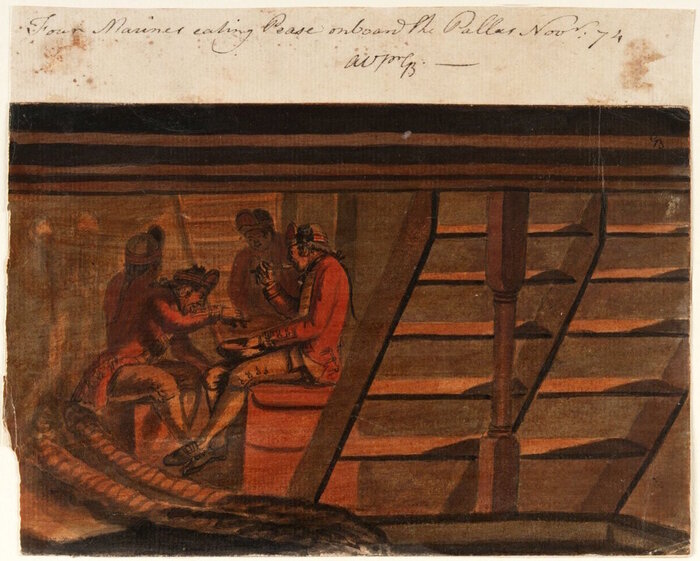 Four Marines eating Pease onboard the Pallas Novr. 74
GB